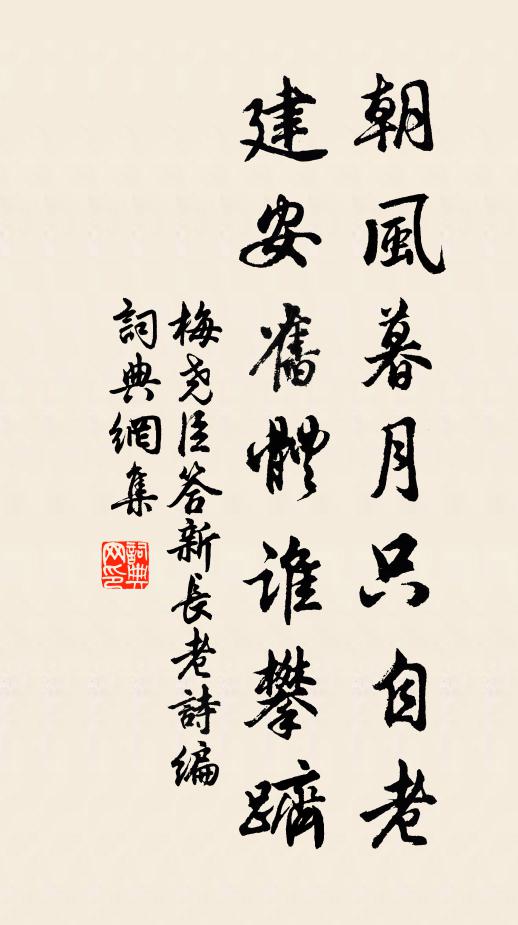 朝風暮月只自老
建安舊體誰攀躋
梅尭臣答新長老詩編
詞典網集
詞典網印